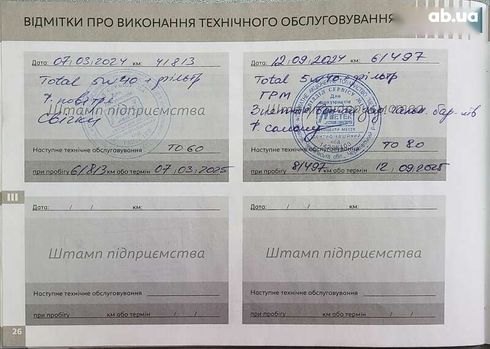 ab.ua
ВІДМІТКИ ПРО ВИКОНАННЯ ТЕХНІЧНОГО ОБСЛУГОВУВАННЯ
Дата: 07.03.2024 км: 41813
Total 5w40 + фільтр
Свічки
Штамп підприємства
Наступне технічне обслуговування ТО 60
при пробігу 61813 км або термін 07.03.2025
Дата: 12.09.2024 км: 61497
Total 5w40 + фільтр
ГРМ
Штамп підприємства
Наступне технічне обслуговування ТО 80
при пробігу 81497 км або термін 12.09.2025
III
Дата: / / км:
Штамп підприємства
Наступне технічне обслуговування
при пробігу км або термін / /
Дата: / / км:
Штамп підприємства
Наступне технічне обслуговування
при пробігу км або термін / /
26